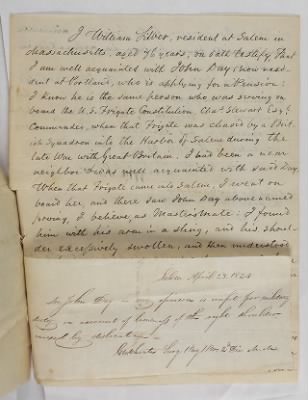 I William Silver, resident at Salem in
Massachusetts, aged 46 years, on oath testify, that
I am well acquainted with John Day, now resi-
dent at Portland, who is applying for a Pension:
I know he is the same person who was serving on
board the U.S. Frigate Constitution Cha.s Stewart Esq.r
Commander, when that Frigate was chased by a Brit-
ish Squadron into the Harbor of Salem during the
late War with Great Britain. I had been a near
neighbor & was well acquainted with said Day.
When that Frigate came into Salem, I went on
board her, and there saw John Day above named
serving, I believe, as Masters mate: I found
him with his arm in a sling, and his shoul-
der excessively swollen, and then understood
Salem April 23. 1824
Mr John Day in my opinion is unfit for military
duty, on account of lameness of the right shoulder
caused by dislocation
Surg.